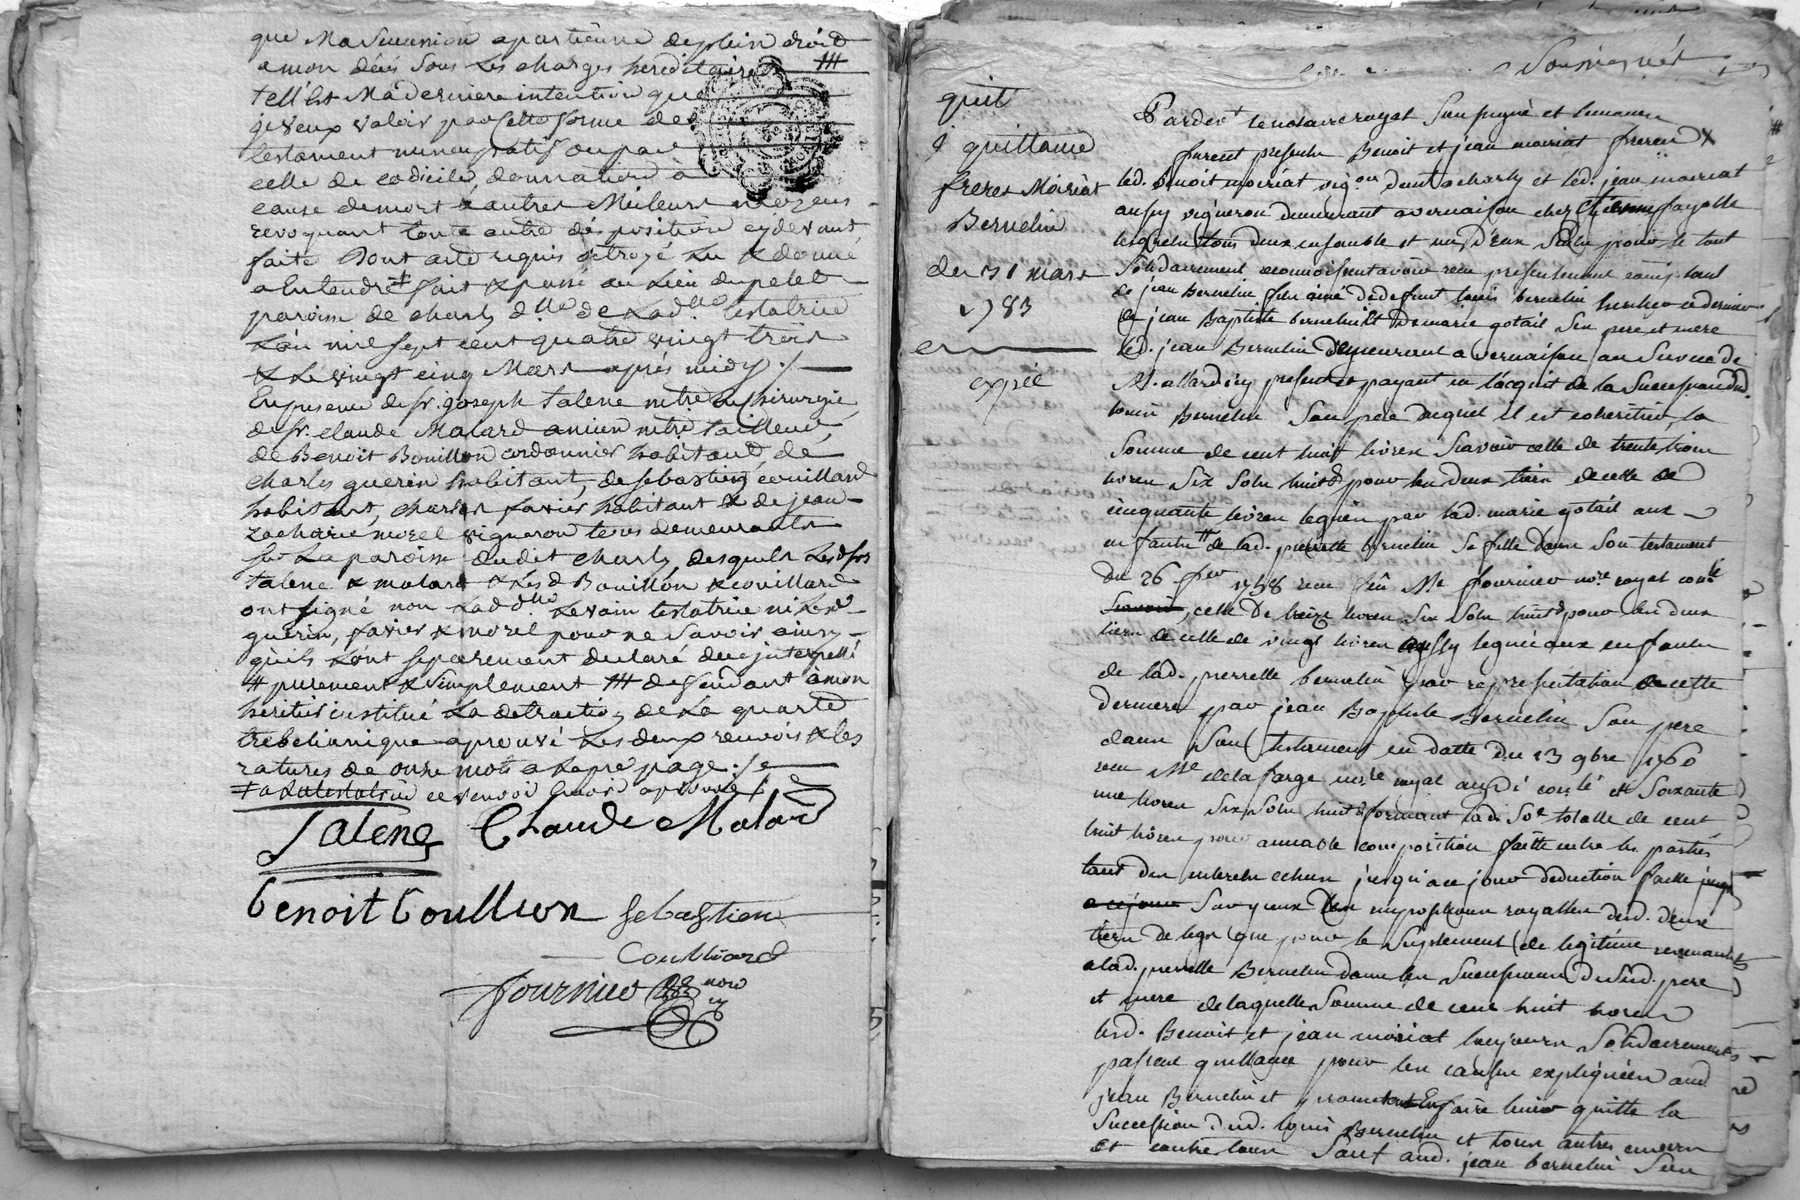 que Ma Succession apartienne de plein droit
a mon décès sous Les charges hereditaires ///
tell'Est Ma derniere intention que
je veux valoir par cette forme de
testament nuncupatif ou par
celle de codicile, donnation à
cause de mort & autres Meilleurs moyens
revoquant toute autre disposition cy devant
faite Dont acte requis octroyé Lu & donné
a Entendre + fait & passé au Lieu du pelet
paroisse de charly d.lle de Lad.lle testatrice
L'an mil sept cent quatre vingt trois
& Le vingt cinq Mars après midy ./.
En presence de sr. joseph talene mtre en Chirurgie,
de sr. claude Malard ancien mtre tailleur,
de Benoit Bouillon cordonnier habitant, de
charles guerin habitant, de sebastien couillard
habitant, charles favier habitant & de jean
zacharie morel vigneron tous demeurants
sur La paroisse dudit charly, desquels Lesd. srs
talene & malard & Lesd Bouillon & couillard
ont signé non Lad.lle testatrice ni Lesd.
guerin, favier & morel pour ne Savoir ainsy
qu'ils L'ont separement declaré de ce interpellé
# purement & simplement /// deffendant à mon
heritier institué La detraction de La quarte
trebelianique aprouvé Les deux renvois & les
ratures de onze mots a La pre page ./.
+ a La testatrice ce renvoi aprouvé
Talene Claude Malard
benoit boullion Sebastien
Coulliard
fournier nore
quit
quittance
freres Moiriat
Bernelin
du 31 mars
1783
expée
Soussignés
Pardevt le notaire royal Soussigné et temoins
furent presents Benoit et jean moiriat freres X
led. Benoit moiriat vigon dudt charly et led. jean moiriat
aussy vigneron demeurant a vernaison chez Etienne fayolle
lesquels tous deux ensemble et un d'Eux Seul pour le tout
Solidairement reconnoissent avoir reçu presentement comptant
de jean Bernelin fils ainé de defunt louis bernelin
de jean Baptiste bernelin & de marie gotail Ses pere et mere
led. jean Bernelin demeurant a vernaison au Service de
M. allard icy present et payant en l'acquit de la Succession dud.
louis Bernelin Son pere duquel il est coheritier, la
Somme de cent huit livres Scavoir celle de trente trois
livres Six Sols huit d. pour les deux tiers de celle de
cinquante livres leguée par lad. marie gotail aux
enfants de lad. pierrette bernelin Sa fille dans Son testament
du 26 fer 1758 reçu feu Me fournier nore royal
celle de treize livres Six Sols huit d. pour les deux
tiers de celle de vingt livres aussy leguée aux enfants
de lad. pierrette bernelin par representation de cette
derniere par jean Baptiste Bernelin Son pere
dans Son testament en datte du 23 9bre 1760
reçu Me delafarge nore royal aussi conlé et Soixante
une livres Six Sols huit d. formant lad. Se totalle de cent
huit livres pour amiable composition faitte entre les parties
tant des interets echus jusqu'a ce jour deduction faitte
a ce jour Sur yceux des impositions royalles desd. deux
tiers de legs que pour le Suplement de legitime revenant
a lad. pierrette Bernelin dans les Successions de Sesd. pere
et mere de laquelle Somme de cent huit livres
lesd. Benoit et jean moiriat toujours Solidairement
passent quittance pour les causes expliquées aud.
jean Bernelin et promettent En faire tenir quitte la
Succession dud. louis Bernelin et tous autres envers
Et contre tous Sauf aud. jean bernelin Son